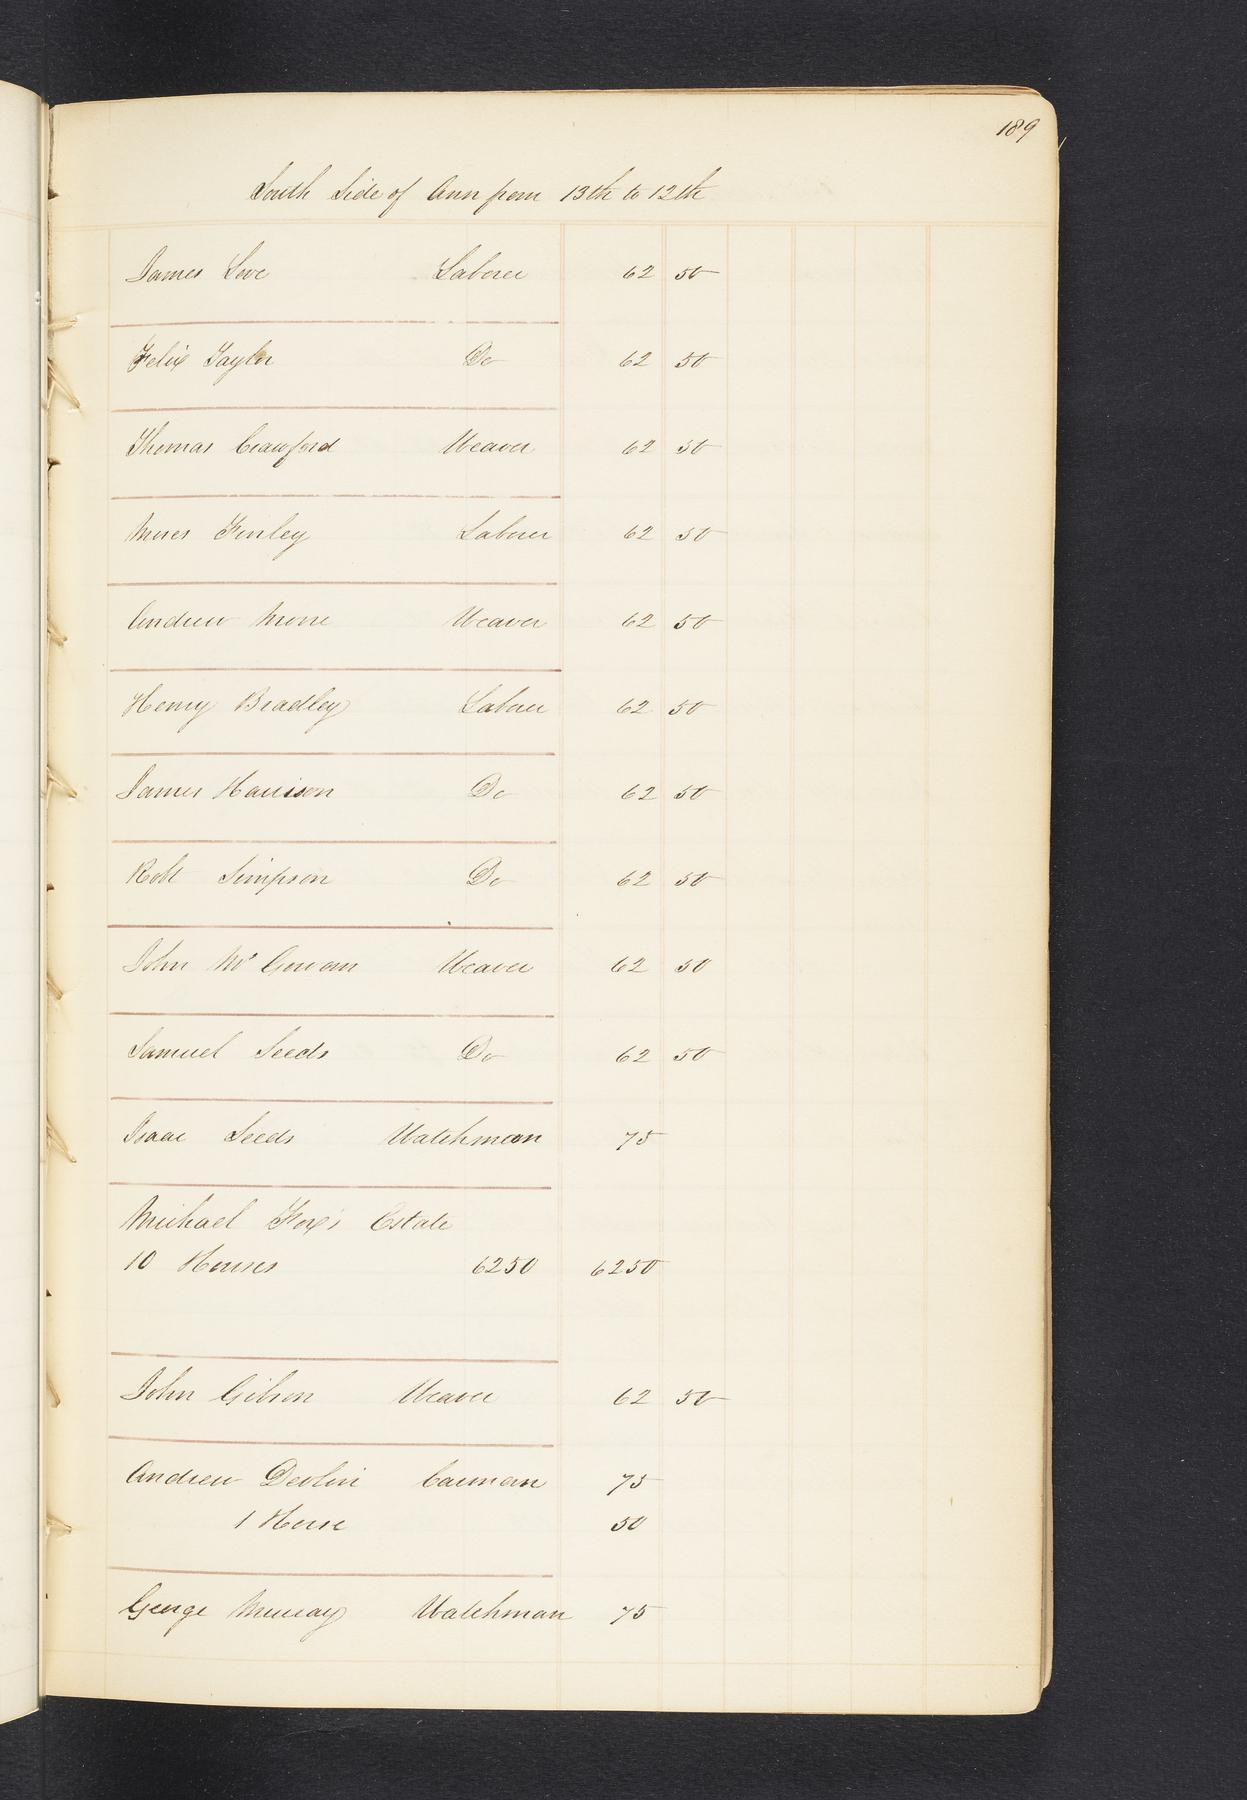 189
South Side of Ann from 13th to 12th
James Love Laborer 62 50
Felix Taylor Do 62 50
Thomas Crawford Weaver 62 50
Moses Finley Laborer 62 50
Andrew Moore Weaver 62 50
Henry Bradley Laborer 62 50
James Harrison Do 62 50
Robt Simpson Do 62 50
John Mc Gowan Weaver 62 50
Samuel Seeds Do 62 50
Isaac Seeds Watchman 75
Michael Fox's Estate
10 Houses 6250 6250
John Gibson Weaver 62 50
Andrew Devlin Carman 75
1 Horse 50
George Murray Watchman 75